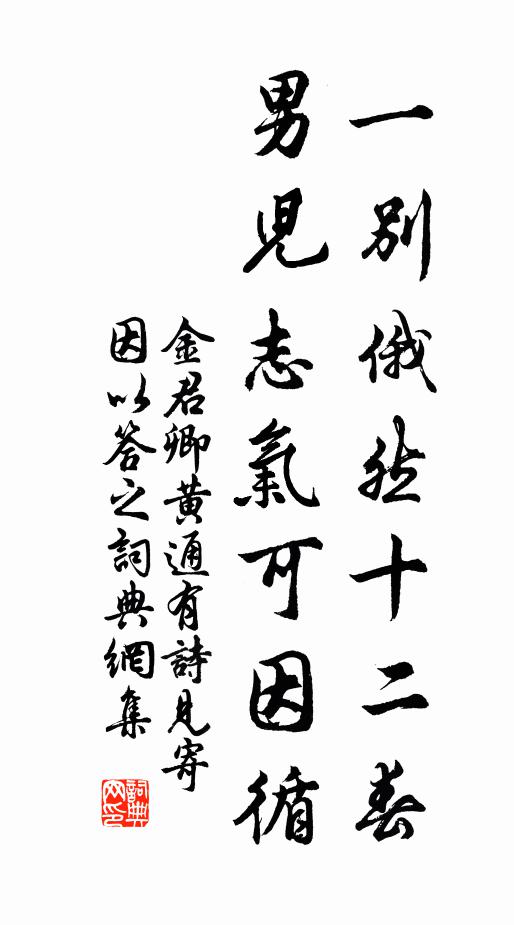 一別俄然十二春
男児志氣可因循
金君卿黃通有詩見寄
因以答之詞典網集
詞典
网印